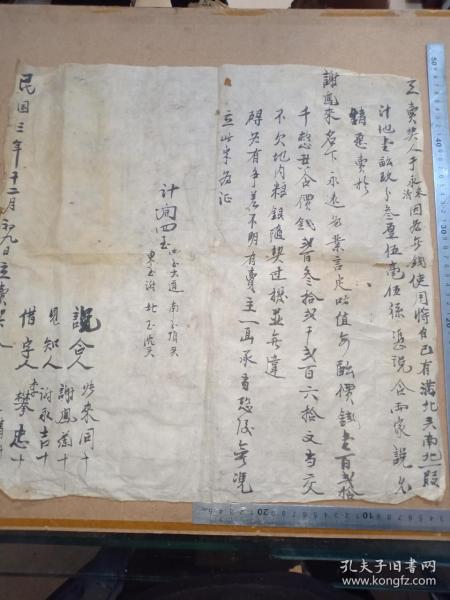 立賣契人于永来清因無錢使用將自己有溝北头南北一段
計地壹畝玖分叁厘伍毫伍絲憑說合兩家說允
情愿賣於
謝鳳來名下永遠為業言定時值每畝價錢壹百弍拾
千整共合價錢弍百叁拾弍千弍百六拾文当交
不欠地内粮銀随契过撥並無違
碍若有争差不明有賣主一面承当恐后無凭
立此契為証
計開四至
西至大道 南至頂头
東至謝 北至
說合人 来同十
見知人 謝鳳 十
謝永吉十
借字人 李攀忠十
民国三年十二月初九日立賣契人
孔夫子旧书网
www.kongfz.com